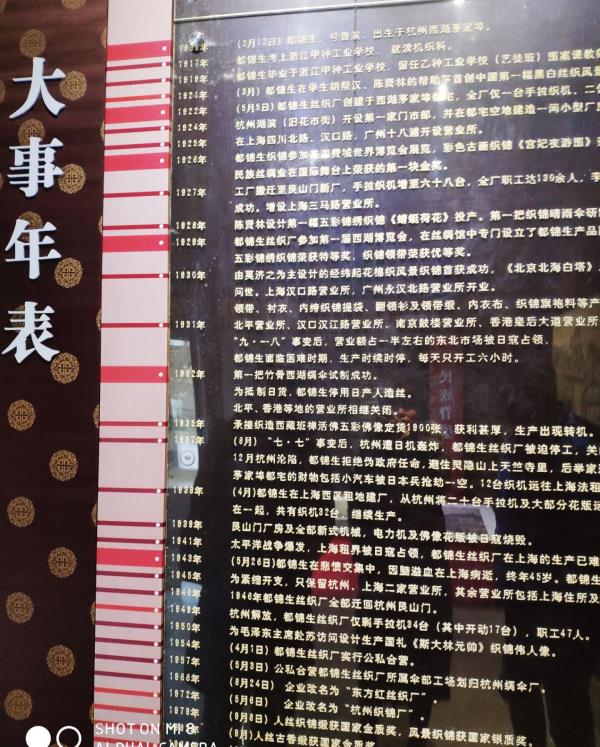 大事年表
(2月12日) 都锦生，号鲁滨，出生于杭州西湖茅家埠。
1917年 都锦生考上浙江甲种工业学校，就读机织科。
1919年 都锦生毕业于浙江甲种工业学校，留任乙种工业学校（艺徒班）图案课教师
(3月) 都锦生在学生胡帮汉、陈贤林的帮助下首创中国第一幅黑白丝织风景
1922年 (5月5日) 都锦生丝织厂创建于西湖茅家埠 全厂仅一台手拉织机、二
1924年 杭州湖滨（旧花市街）开设第一家门市部，并在都宅空地建造一间小型厂
1925年 在上海四川北路、汉口路，广州十八浦开设营业所。
1926年 都锦生织锦参加美国费城世界博览会展览，彩色古画织锦《宫妃夜游图》
民族丝绸业在国际舞台上荣获的第一块金奖。
1927年 工厂搬迁至艮山门新厂，手拉织机增至六十八台，全厂职工达130余人，
成功。增设上海三马路营业所。
1928年 陈贤林设计第一幅五彩锦绣织锦《蜻蜓荷花》投产。第一把织锦晴雨伞研
1929年 都锦生丝织厂参加第一届西湖博览会，在丝绸馆中专门设立了都锦生产品
五彩锦绣织锦荣获特等奖，织锦领带荣获优等奖。
1930年 由莫济之为主设计的经纬起花棉织风景织锦首获成功，《北京北海白塔》
问世。上海汉口路营业所，广州永汉北路营业所开业。
领带、衬衣、内绔织锦提袋、翻领衫及领带缎、内衣布、织锦旗袍料等产
1931年 北平营业所、汉口汉江路营业所、南京鼓楼营业所、香港皇后大道营业所
“九·一八”事变后，营业额占一半左右的东北市场被日寇占领，
都锦生面临困难时期，生产时续时停，每天只开工六小时。
1932年 第一把竹骨西湖绸伞试制成功。
为抵制日货，都锦生停用日产人造丝。
北平、香港等地的营业所相继关闭。
1935年 承接织造西藏班禅活佛五彩佛像定货1900张，获利甚厚，生产出现转机。
1937年 (8月) “七·七”事变后，杭州遭日机轰炸，都锦生丝织厂被迫停工，关
12月杭州沦陷，都锦生拒绝伪政府任命，避住灵隐山上天竺寺里，后举家
茅家埠都宅的财物包括小汽车被日本兵抢劫一空。12台织机运往上海法租
1938年 (4月) 都锦生在上海西区租地建厂，从杭州将二十台手拉机及大部分花版
在一起，共有织机32台，继续生产。
1939年 艮山门厂房及全部新式机械，电力机及佛像花版被日寇烧毁。
1941年 太平洋战争爆发，上海租界被日寇占领，都锦生丝织厂在上海的生产已难
1943年 (5月26日) 都锦生在悲愤交集中，因脑溢血在上海病逝，终年45岁。都锦生
1945年 为紧缩开支，只保留杭州、上海二家营业所，其余营业所包括上海住所及
1946年 1946年都锦生丝织厂全部迁回杭州艮山门。
1949年 杭州解放，都锦生丝织厂仅剩手拉机34台（其中开动17台），职工47人。
1950年 为毛泽东主席赴苏访问设计生产国礼《斯大林元帅》织锦伟人像。
1954年 (4月1日) 都锦生丝织厂实行公私合营。
1957年 (5月3日) 公私合营都锦生丝织厂所属伞部工场划归杭州绸伞厂。
1966年 (8月24日) 企业改名为“东方红丝织厂”
1972年 (5月6日) 企业改名为“杭州织锦厂”
1979年 (9月8日) 人丝织锦缎获国家金质奖，风景织锦获国家银质奖。
(9月) 人丝古香缎获国家金质奖
SHOT ON MI 8